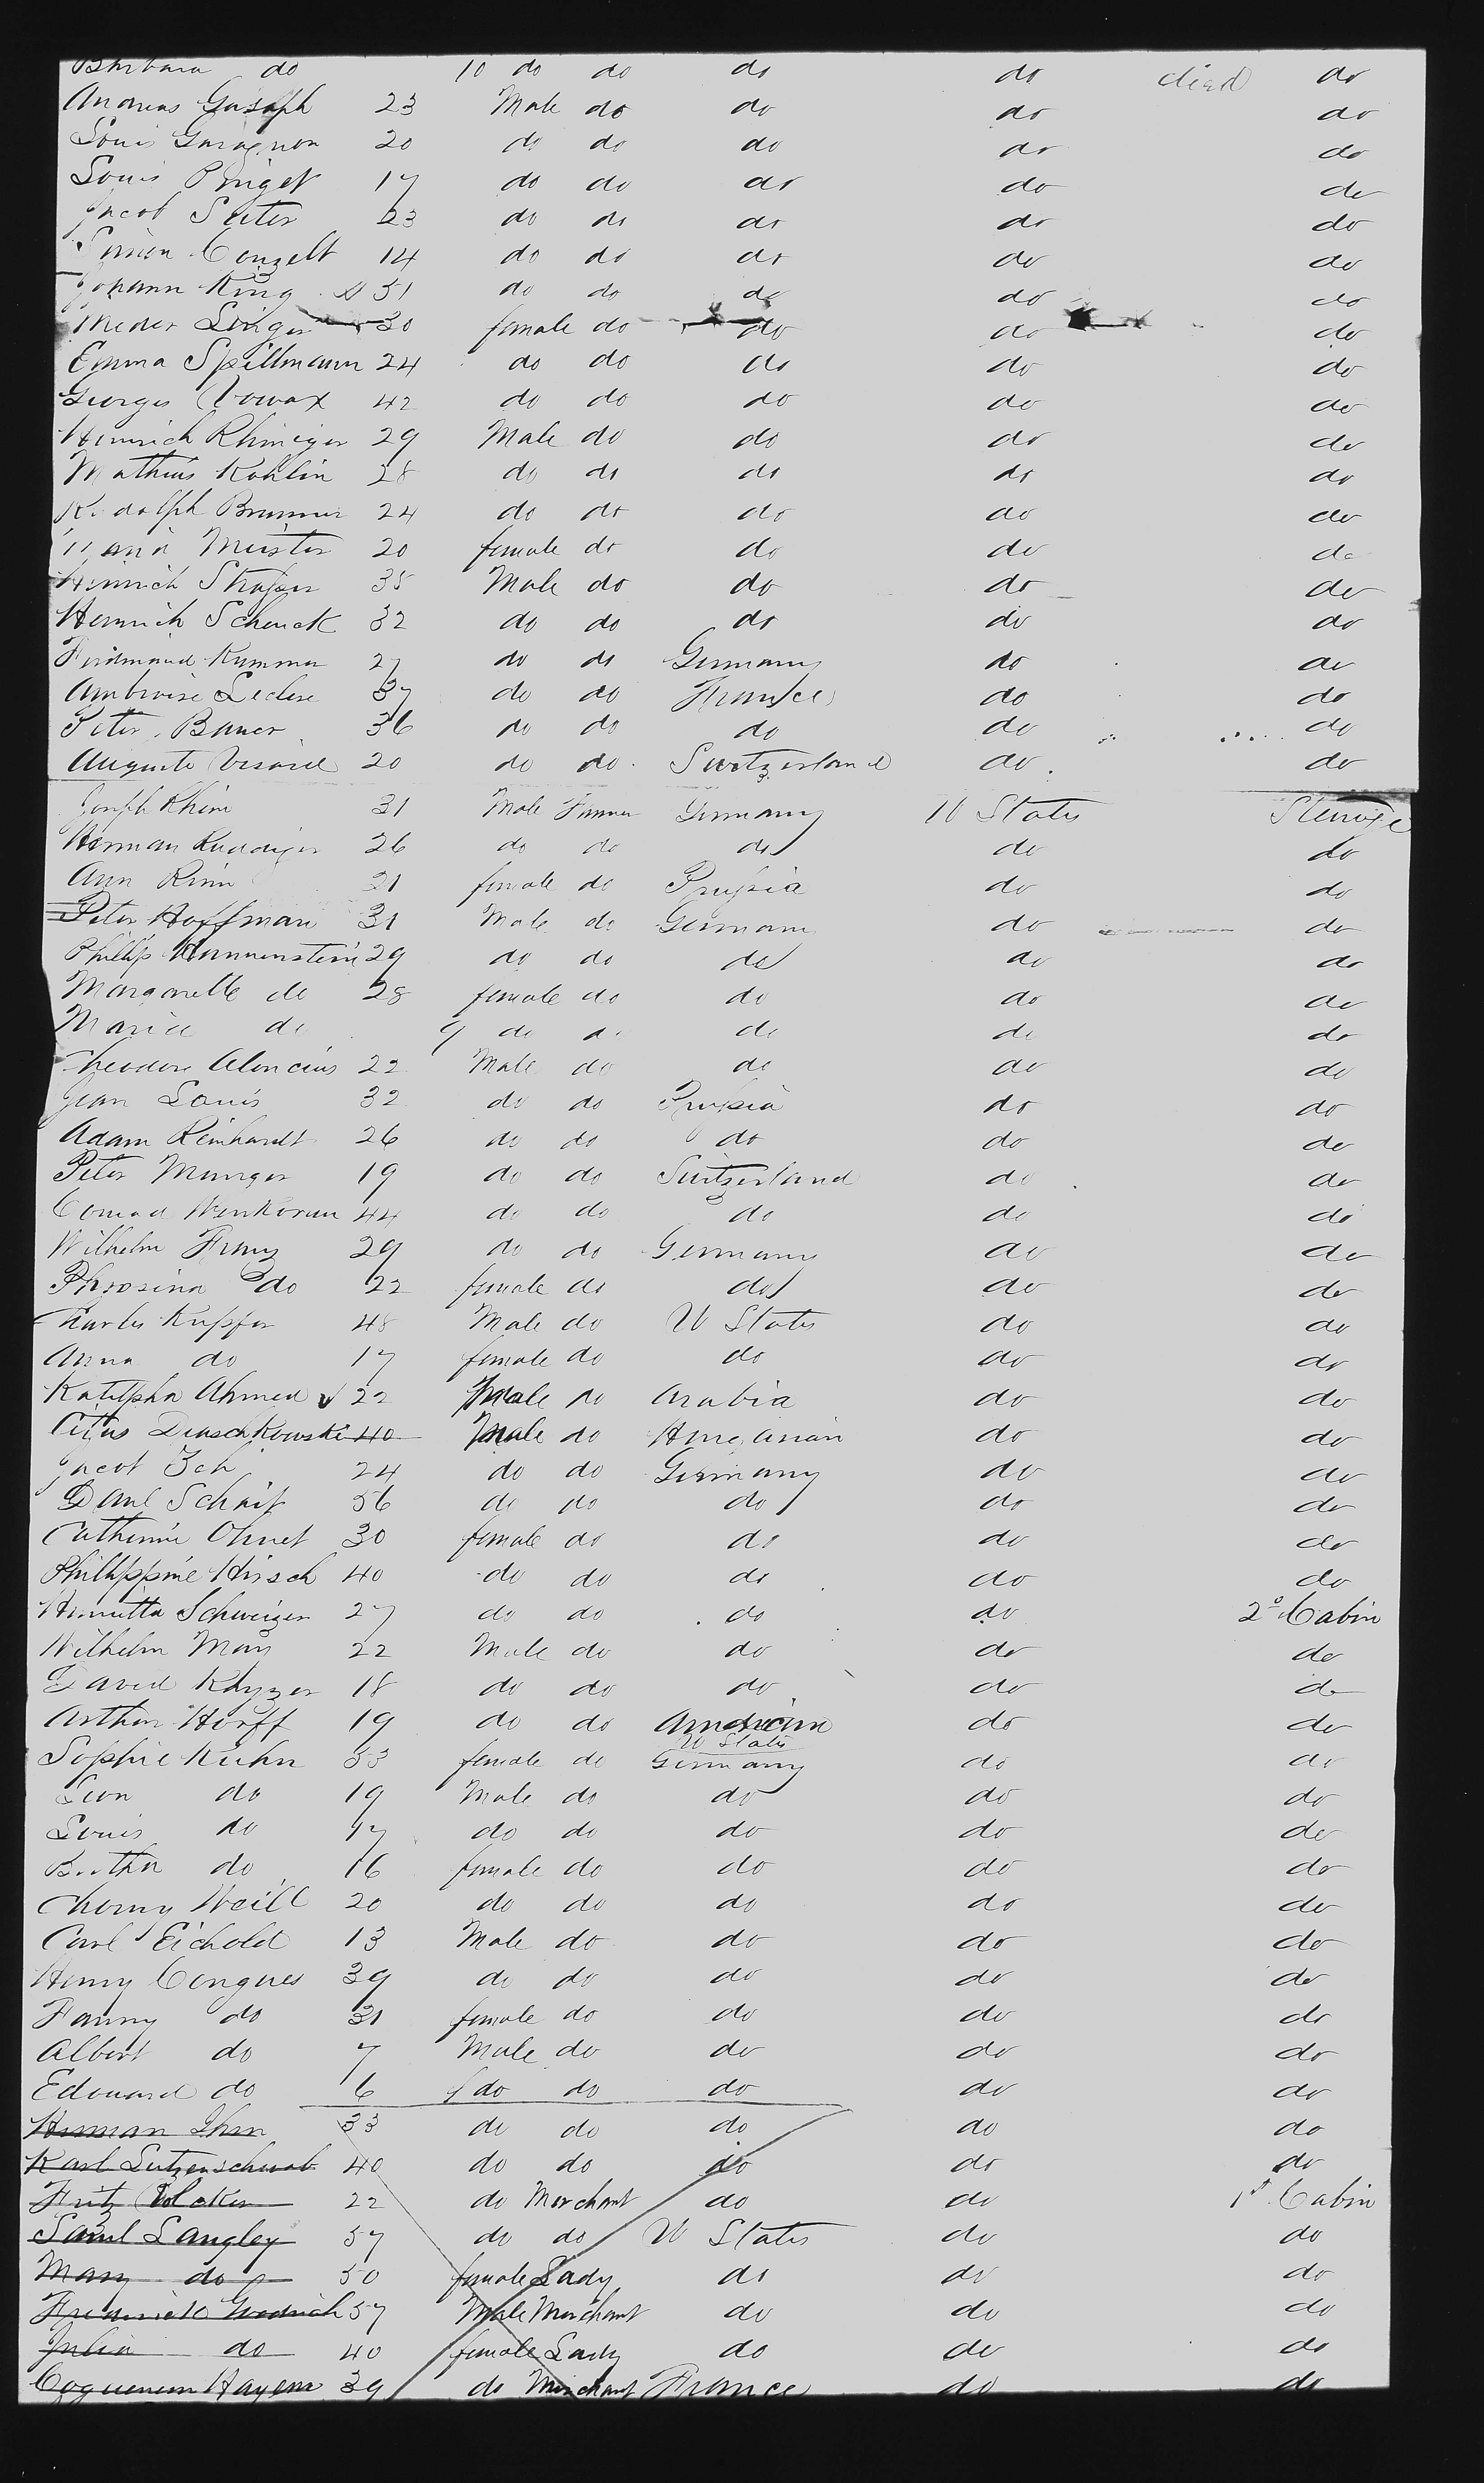 Barbara do 10 do do do do died do
Andreas Gusaph 23 Male do do do do
Louis Garagnon 20 do do do do do
Louis Pinget 17 do do do do do
Jacob Suter 23 do do do do do
Simon Conzelt 14 do do do do do
Johann King 31 do do do do do
Meder Singer 30 female do do do do
Emma Spillmann 24 do do do do do
Georges Vowax 42 do do do do do
Heinrich Rhiniger 29 Male do do do do
Mathias Kohlin 28 do do do do do
Rudolph Brunner 24 do do do do do
Maria Meister 20 female do do do do
Heinrich 35 Male do do do do
Heinrich Schenck 32 do do do do do
Ferdinand Kummer 27 do do Germany do do
Ambroise Leclere 37 do do France do do
Peter Bauer 36 do do do do do
Auguste 20 do do Switzerland do do
Joseph Rhein 31 Male Farmer Germany U States Steerage
Herman Rudiger 26 do do do do do
Ann Rinn 21 female do Prussia do do
Peter Hoffman 31 Male do Germany do do
Phillip Hammenstein 29 do do do do do
Margarette do 28 female do do do do
Maria do 9 do do do do do
Theodore Aloncius 22 Male do do do do
Jean Louis 32 do do Prussia do do
Adam Reinhardt 26 do do do do do
Peter Munger 19 do do Switzerland do do
Conrad Wenkorum 44 do do do do do
Wilhelm Franz 29 do do Germany do do
Phrosina do 22 female do do do do
Charles Kupfer 48 Male do U States do do
Anna do 17 female do do do do
Katulpha Ahmed 22 Male do Arabia do do
Titus Duschkowski 40 Male do Hungarian do do
Jacob Ich 24 do do Germany do do
Danl Schaif 56 do do do do do
Catherine Ohnet 30 female do do do do
Phillippine Hirsch 40 do do do do do
Henrietta Schweizer 27 do do do do 2° Cabin
Wilhelm May 22 Male do do do do
David Kayzer 18 do do do do do
Arthur Horff 19 do do American do do
U States
Sophie Kuhn 53 female do Germany do do
Leon do 19 Male do do do do
Louis do 17 do do do do do
Bertha do 16 female do do do do
Cherny Weill 20 do do do do do
Carl Eichold 13 Male do do do do
Henry Congues 39 do do do do do
Fanny do 31 female do do do do
Albert do 7 Male do do do do
Edouard do 6 do do do do do
Herman Ihm 33 do do do do do
Karl Lutzenschwab 40 do do do do do
Fritz Volcker 22 do Merchant do do 1st Cabin
Saml Langley 57 do do U States do do
Mary do 50 female Lady do do do
Frederick Goodrich 57 Male Merchant do do do
Julia do 40 female Lady do do do
Coguenem Hayem 39 do Merchant France do do